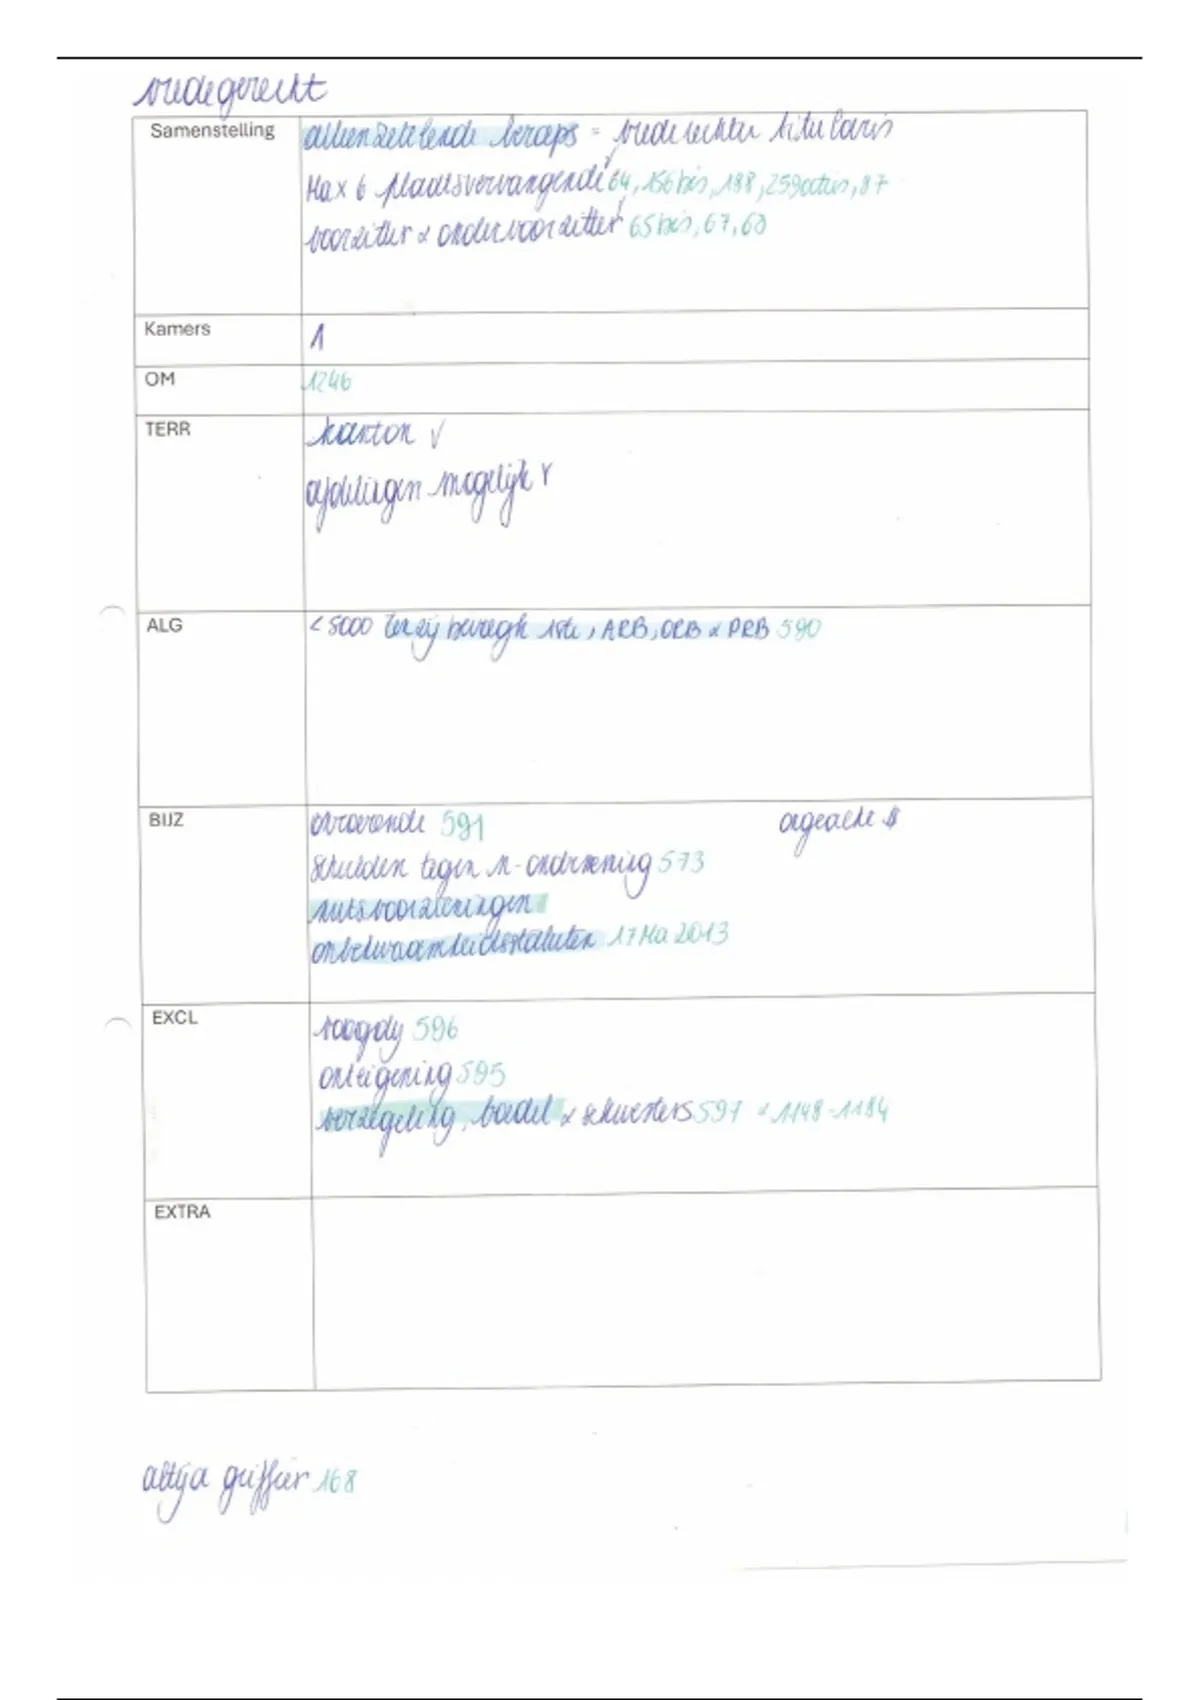 vredegerecht
Samenstelling
alleenzetelende beroeps = vrederechter titularis
Max 6 plaatsvervangende 64, 156bis, 188, 259octies, 87
voorzitter & ondervoorzitter 65bis, 67, 68
Kamers
1
OM
1246
TERR
kanton √
afdelingen mogelijk
ALG
< 5000 tenzij bevoegdh 1ste, ARB, ORB & PRB 590
BIJZ
onroerende 591
ongeacht $
schulden tegen n-onderneming 573
nutsvoorzieningen
onbekwaamheidsstatuten 17 Ma 2013
EXCL
voogdij 596
onteigening 595
verzegeling, boedel & sekwesters 597 & 1148-1184
EXTRA
altijd griffier 168